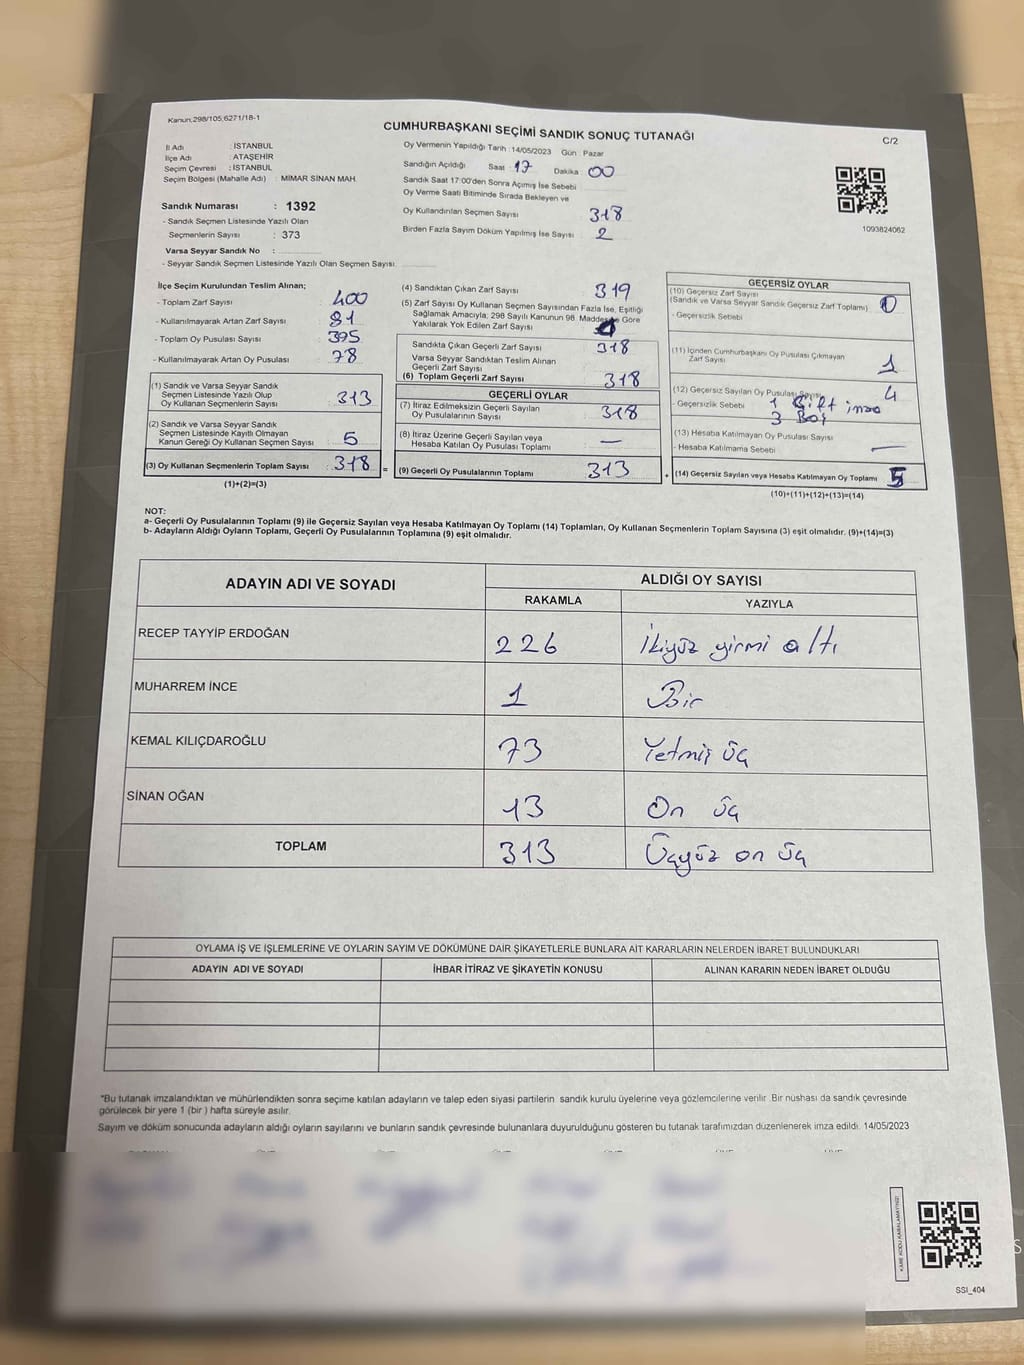 Kanun.298/105,6271/18-1
CUMHURBAŞKANI SEÇİMİ SANDIK SONUÇ TUTANAĞI
C/2
İl Adı : İSTANBUL
İlçe Adı : ATAŞEHİR
Seçim Çevresi : İSTANBUL
Seçim Bölgesi (Mahalle Adı) : MİMAR SİNAN MAH.
Sandık Numarası : 1392
- Sandık Seçmen Listesinde Yazılı Olan
Seçmenlerin Sayısı : 373
Varsa Seyyar Sandık No :
- Seyyar Sandık Seçmen Listesinde Yazılı Olan Seçmen Sayısı:
Oy Vermenin Yapıldığı Tarih :14/05/2023 Gün : Pazar
Sandığın Açıldığı Saat : 17 Dakika : 00
Sandık Saat 17:00'den Sonra Açımış İse Sebebi
Oy Verme Saati Bitiminde Sırada Bekleyen ve
Oy Kullandırılan Seçmen Sayısı 318
Birden Fazla Sayım Döküm Yapılmış İse Sayısı : 2
1093824062
İlçe Seçim Kurulundan Teslim Alınan;
- Toplam Zarf Sayısı : 400
- Kullanılmayarak Artan Zarf Sayısı : 81
- Toplam Oy Pusulası Sayısı : 395
- Kullanılmayarak Artan Oy Pusulası : 78
(1) Sandık ve Varsa Seyyar Sandık
Seçmen Listesinde Yazılı Olup
Oy Kullanan Seçmenlerin Sayısı : 313
(2) Sandık ve Varsa Seyyar Sandık
Seçmen Listesinde Kayıtlı Olmayan
Kanun Gereği Oy Kullanan Seçmen Sayısı : 5
(3) Oy Kullanan Seçmenlerin Toplam Sayısı : 318 =
(1)+(2)=(3)
(4) Sandıktan Çıkan Zarf Sayısı : 319
(5) Zarf Sayısı Oy Kullanan Seçmen Sayısından Fazla İse, Eşitliği
Sağlamak Amacıyla; 298 Sayılı Kanunun 98. Maddesine Göre
Yakılarak Yok Edilen Zarf Sayısı
Sandıkta Çıkan Geçerli Zarf Sayısı : 318
Varsa Seyyar Sandıktan Teslim Alınan
Geçerli Zarf Sayısı
(6) Toplam Geçerli Zarf Sayısı : 318
GEÇERLİ OYLAR
(7) İtiraz Edilmeksizin Geçerli Sayılan
Oy Pusulalarının Sayısı : 318
(8) İtiraz Üzerine Geçerli Sayılan veya
Hesaba Katılan Oy Pusulası Toplamı : —
(9) Geçerli Oy Pusulalarının Toplamı : 313 +
GEÇERSİZ OYLAR
(10) Geçersiz Zarf Sayısı
(Sandık ve Varsa Seyyar Sandık Geçersiz Zarf Toplamı) : 0
- Geçersizlik Sebebi
(11) İçinden Cumhurbaşkanı Oy Pusulası Çıkmayan
Zarf Sayısı : 1
(12) Geçersiz Sayılan Oy Pusulası Sayısı 4
- Geçersizlik Sebebi 1 Çift imza
3 Boş
(13) Hesaba Katılmayan Oy Pusulası Sayısı
- Hesaba Katılmama Sebebi —
(14) Geçersiz Sayılan veya Hesaba Katılmayan Oy Toplamı : 5
(10)+(11)+(12)+(13)=(14)
NOT:
a- Geçerli Oy Pusulalarının Toplamı (9) ile Geçersiz Sayılan veya Hesaba Katılmayan Oy Toplamı (14) Toplamları, Oy Kullanan Seçmenlerin Toplam Sayısına (3) eşit olmalıdır. (9)+(14)=(3)
b- Adayların Aldığı Oyların Toplamı, Geçerli Oy Pusulalarının Toplamına (9) eşit olmalıdır.
ADAYIN ADI VE SOYADI
ALDIĞI OY SAYISI
RAKAMLA YAZIYLA
RECEP TAYYİP ERDOĞAN 226 İkiyüz yirmi altı
MUHARREM İNCE 1 Bir
KEMAL KILIÇDAROĞLU 73 Yetmiş üç
SİNAN OĞAN 13 On üç
TOPLAM 313 Üçyüz on üç
OYLAMA İŞ VE İŞLEMLERİNE VE OYLARIN SAYIM VE DÖKÜMÜNE DAİR ŞİKAYETLERLE BUNLARA AİT KARARLARIN NELERDEN İBARET BULUNDUKLARI
ADAYIN ADI VE SOYADI İHBAR İTİRAZ VE ŞİKAYETİN KONUSU ALINAN KARARIN NEDEN İBARET OLDUĞU
*Bu tutanak imzalandıktan ve mühürlendikten sonra seçime katılan adayların ve talep eden siyasi partilerin sandık kurulu üyelerine veya gözlemcilerine verilir. Bir nüshası da sandık çevresinde
görülecek bir yere 1 (bir) hafta süreyle asılır.
Sayım ve döküm sonucunda adayların aldığı oyların sayılarını ve bunların sandık çevresinde bulunanlara duyurulduğunu gösteren bu tutanak tarafımızdan düzenlenerek imza edildi. 14/05/2023
KARE KODU KARALAMAYINIZ!
SSI_404